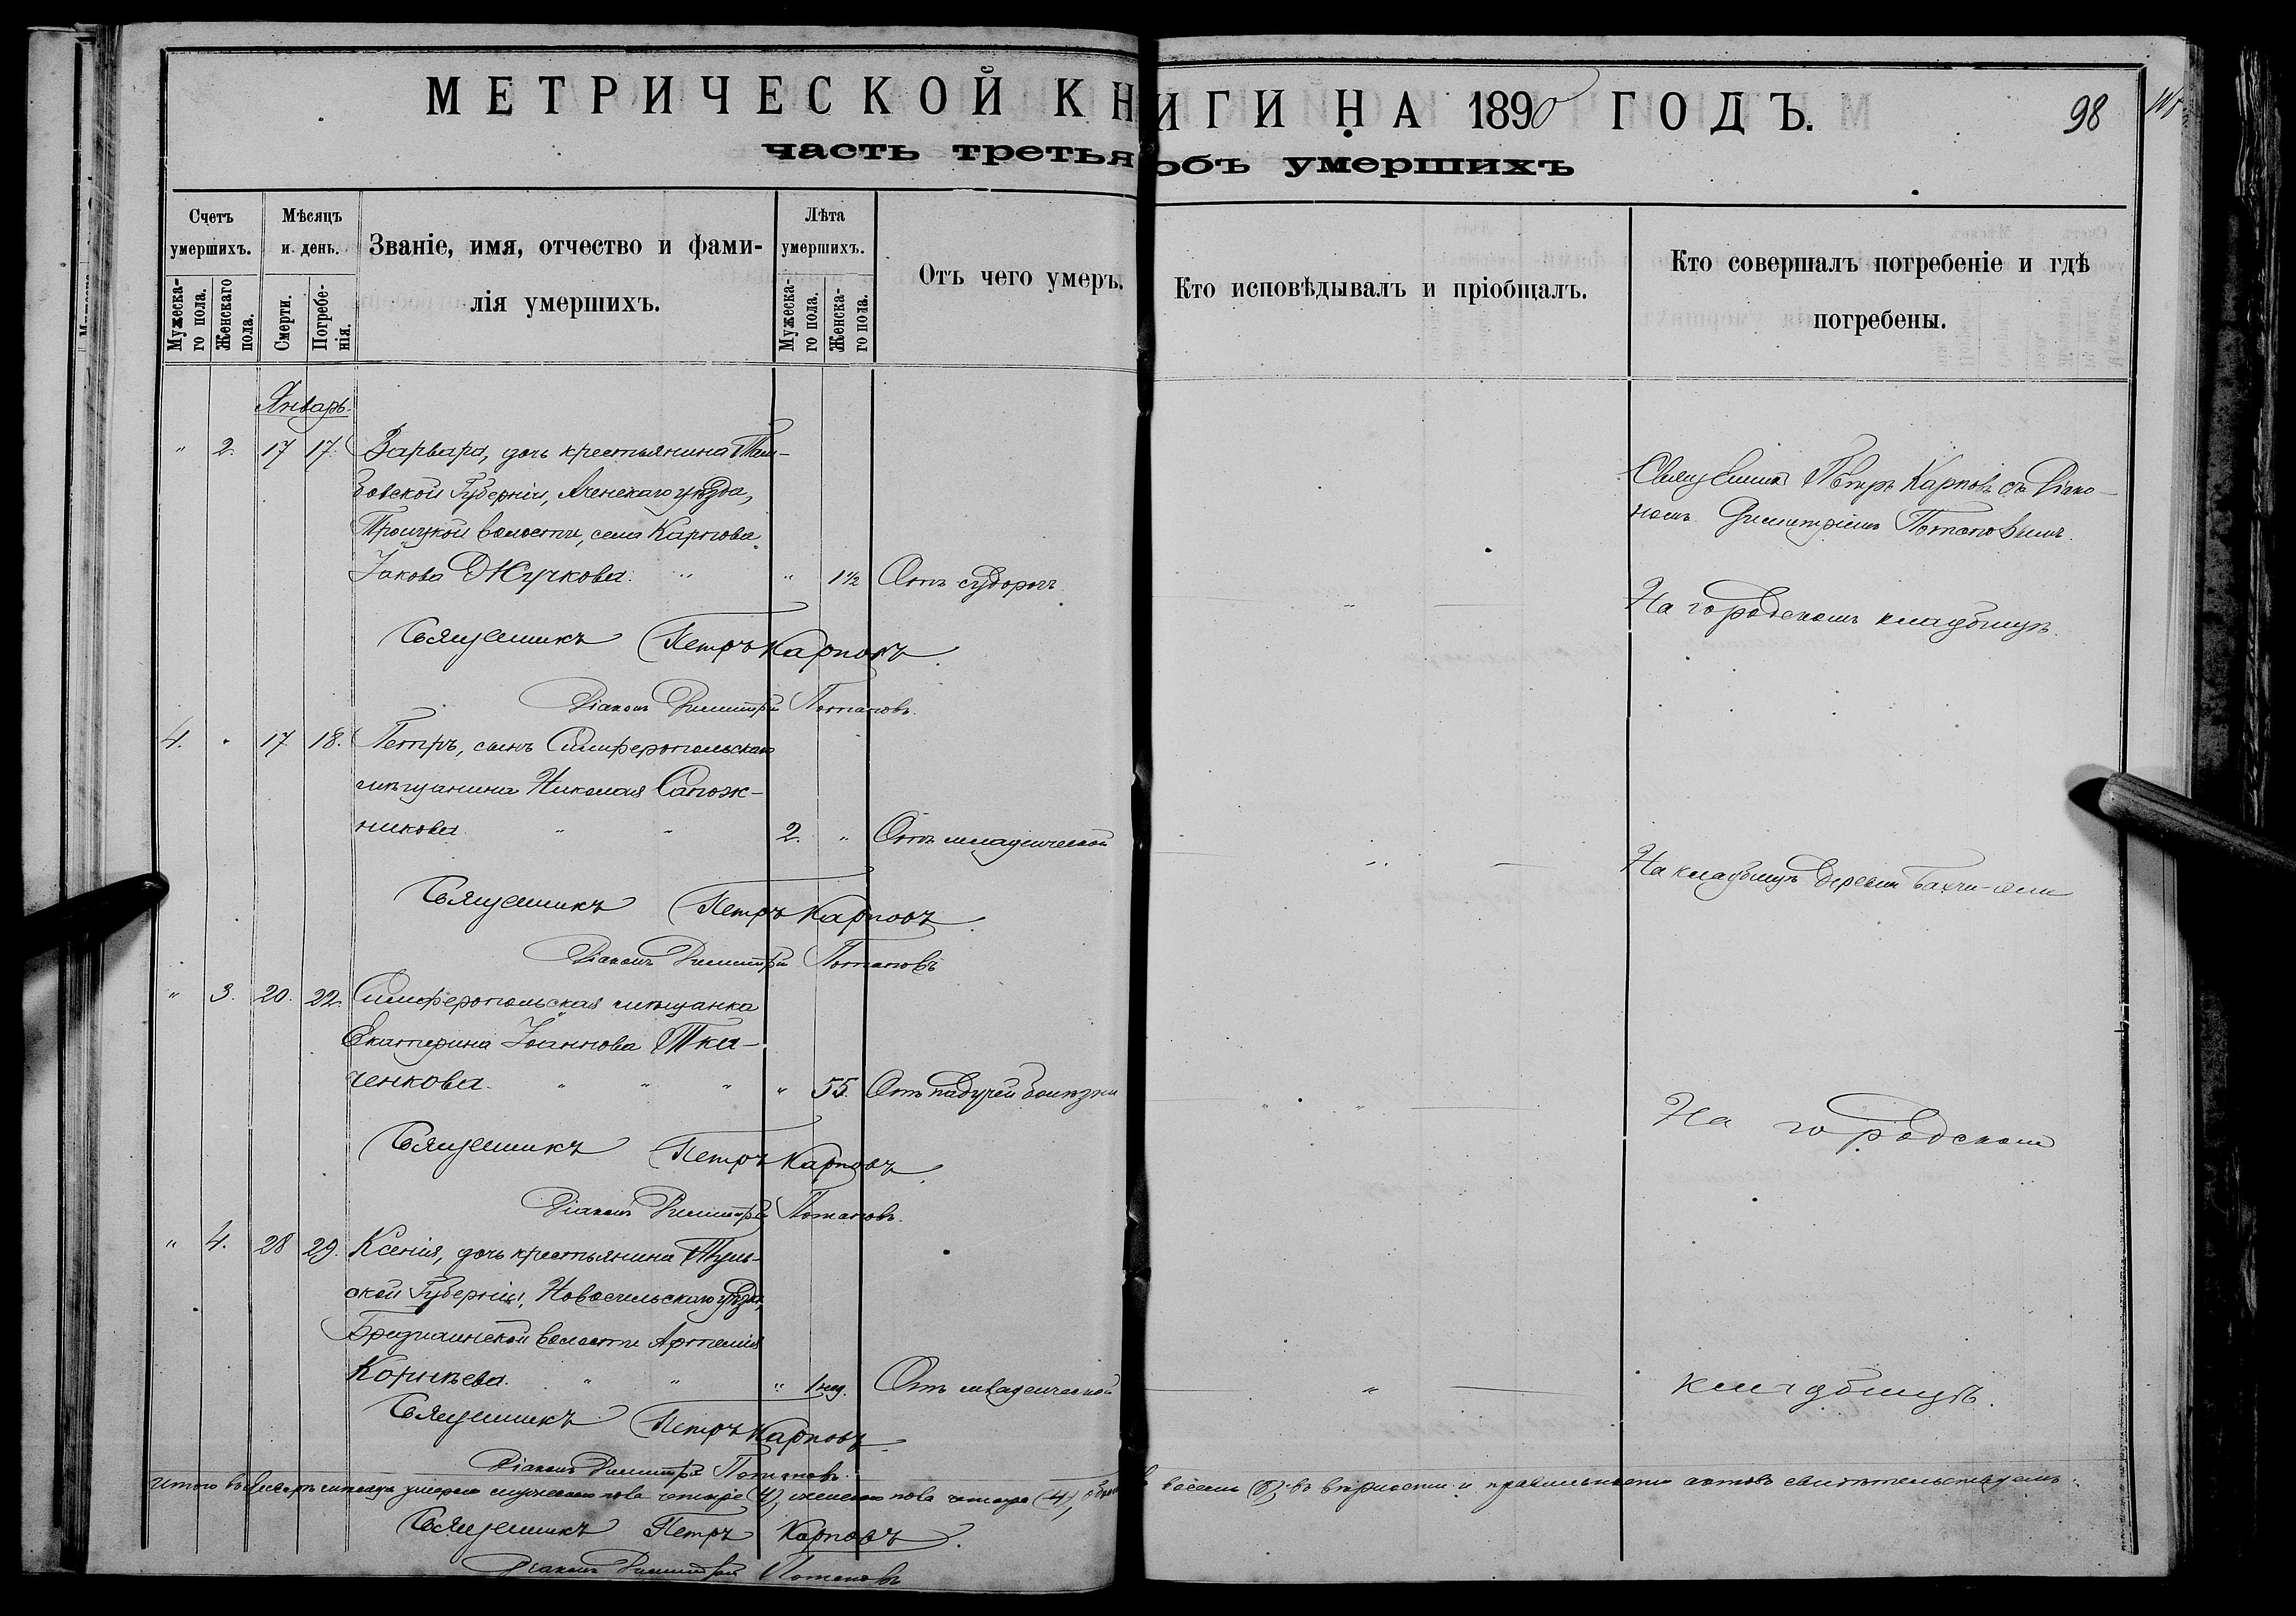 МЕТРИЧЕСКОЙ КНИГИ НА 1890 ГОДЪ.
98
часть третья объ умершихъ
Счетъ умершихъ.
Мужеска-го пола.
Женскаго пола.
Мѣсяцъ и день.
Смерти.
Погребе-нія.
Званіе, имя, отчество и фами-
лія умершихъ.
Лѣта умершихъ.
Мужеска-го пола.
Женска-го пола.
Отъ чего умеръ.
Кто исповѣдывалъ и пріобщалъ.
Кто совершалъ погребеніе и гдѣ
погребены.
Январь.
" 2. 17 17. Варвара, дочь крестьянина Там-
бовской Губерніи, уѣзда,
Троицкой волости, села Карпова
Іакова Жучкова. " " 1½ Отъ судорогъ
Священникъ Петръ Карповъ съ Діако-
номъ Димитріемъ Потаповымъ.
На городскомъ кладбищѣ.
Священникъ Петръ Карповъ.
Діаконъ Димитрій Потаповъ.
4. " 17 18. Петръ, сынъ Симферопольскаго
мѣщанина Николая Сапож-
никова " " 2. " Отъ младенческой
На кладбищѣ деревни Бахчи-эли
Священникъ Петръ Карповъ.
Діаконъ Димитрій Потаповъ
" 3. 20. 22. Симферопольская мѣщанка
Екатерина Іоаннова Тка-
ченкова " " " " 55. Отъ падучей болѣзни
На городскомъ
Священникъ Петръ Карповъ.
Діаконъ Димитрій Потаповъ.
" 4. 28 29. Ксенія, дочь крестьянина Туль-
ской Губерніи, Новосильскаго уѣзда,
волости Артемія
Корнѣева. " " " 1 нед. Отъ младенческой
кладбищѣ.
Священникъ Петръ Карповъ.
Діаконъ Димитрій Потаповъ.
Итого въ Январѣ мѣсяцѣ умерло мужескаго пола четыре (4), женскаго пола четыре (4), восемь (8); въ вѣрности и правильности актовъ свидѣтельствуемъ:
Священникъ Петръ Карповъ.
Діаконъ Димитрій Потаповъ